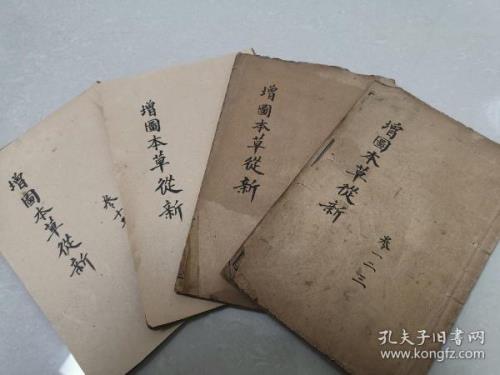 增圖本草從新
增圖本草從新
卷十
增圖本草從新
增圖本草從新
卷一二三
孔夫子旧书网
www.kongfz.com